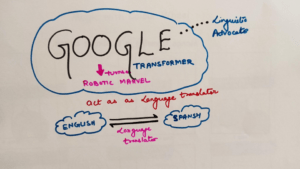 Linguistic
Advocate
GOOGLE
TRANSFORMER
turned
ROBOTIC MARVEL
act as as language translator
ENGLISH
SPANSH
Language
translator